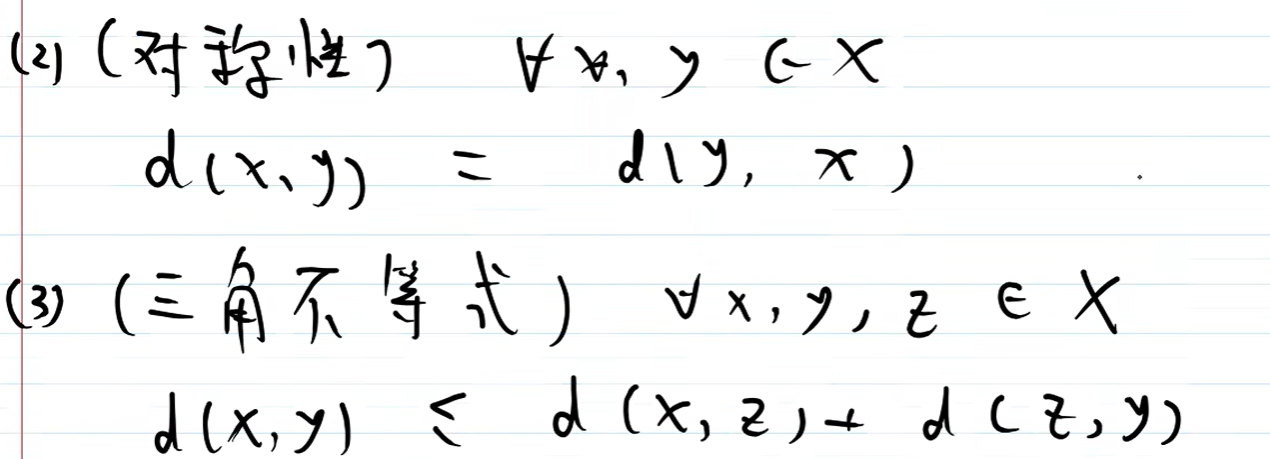 (2) (对称性) ∀ x, y ∈ X
d(x, y) = d(y, x)
(3) (三角不等式) ∀ x, y, z ∈ X
d(x, y) ≤ d(x, z) + d(z, y)